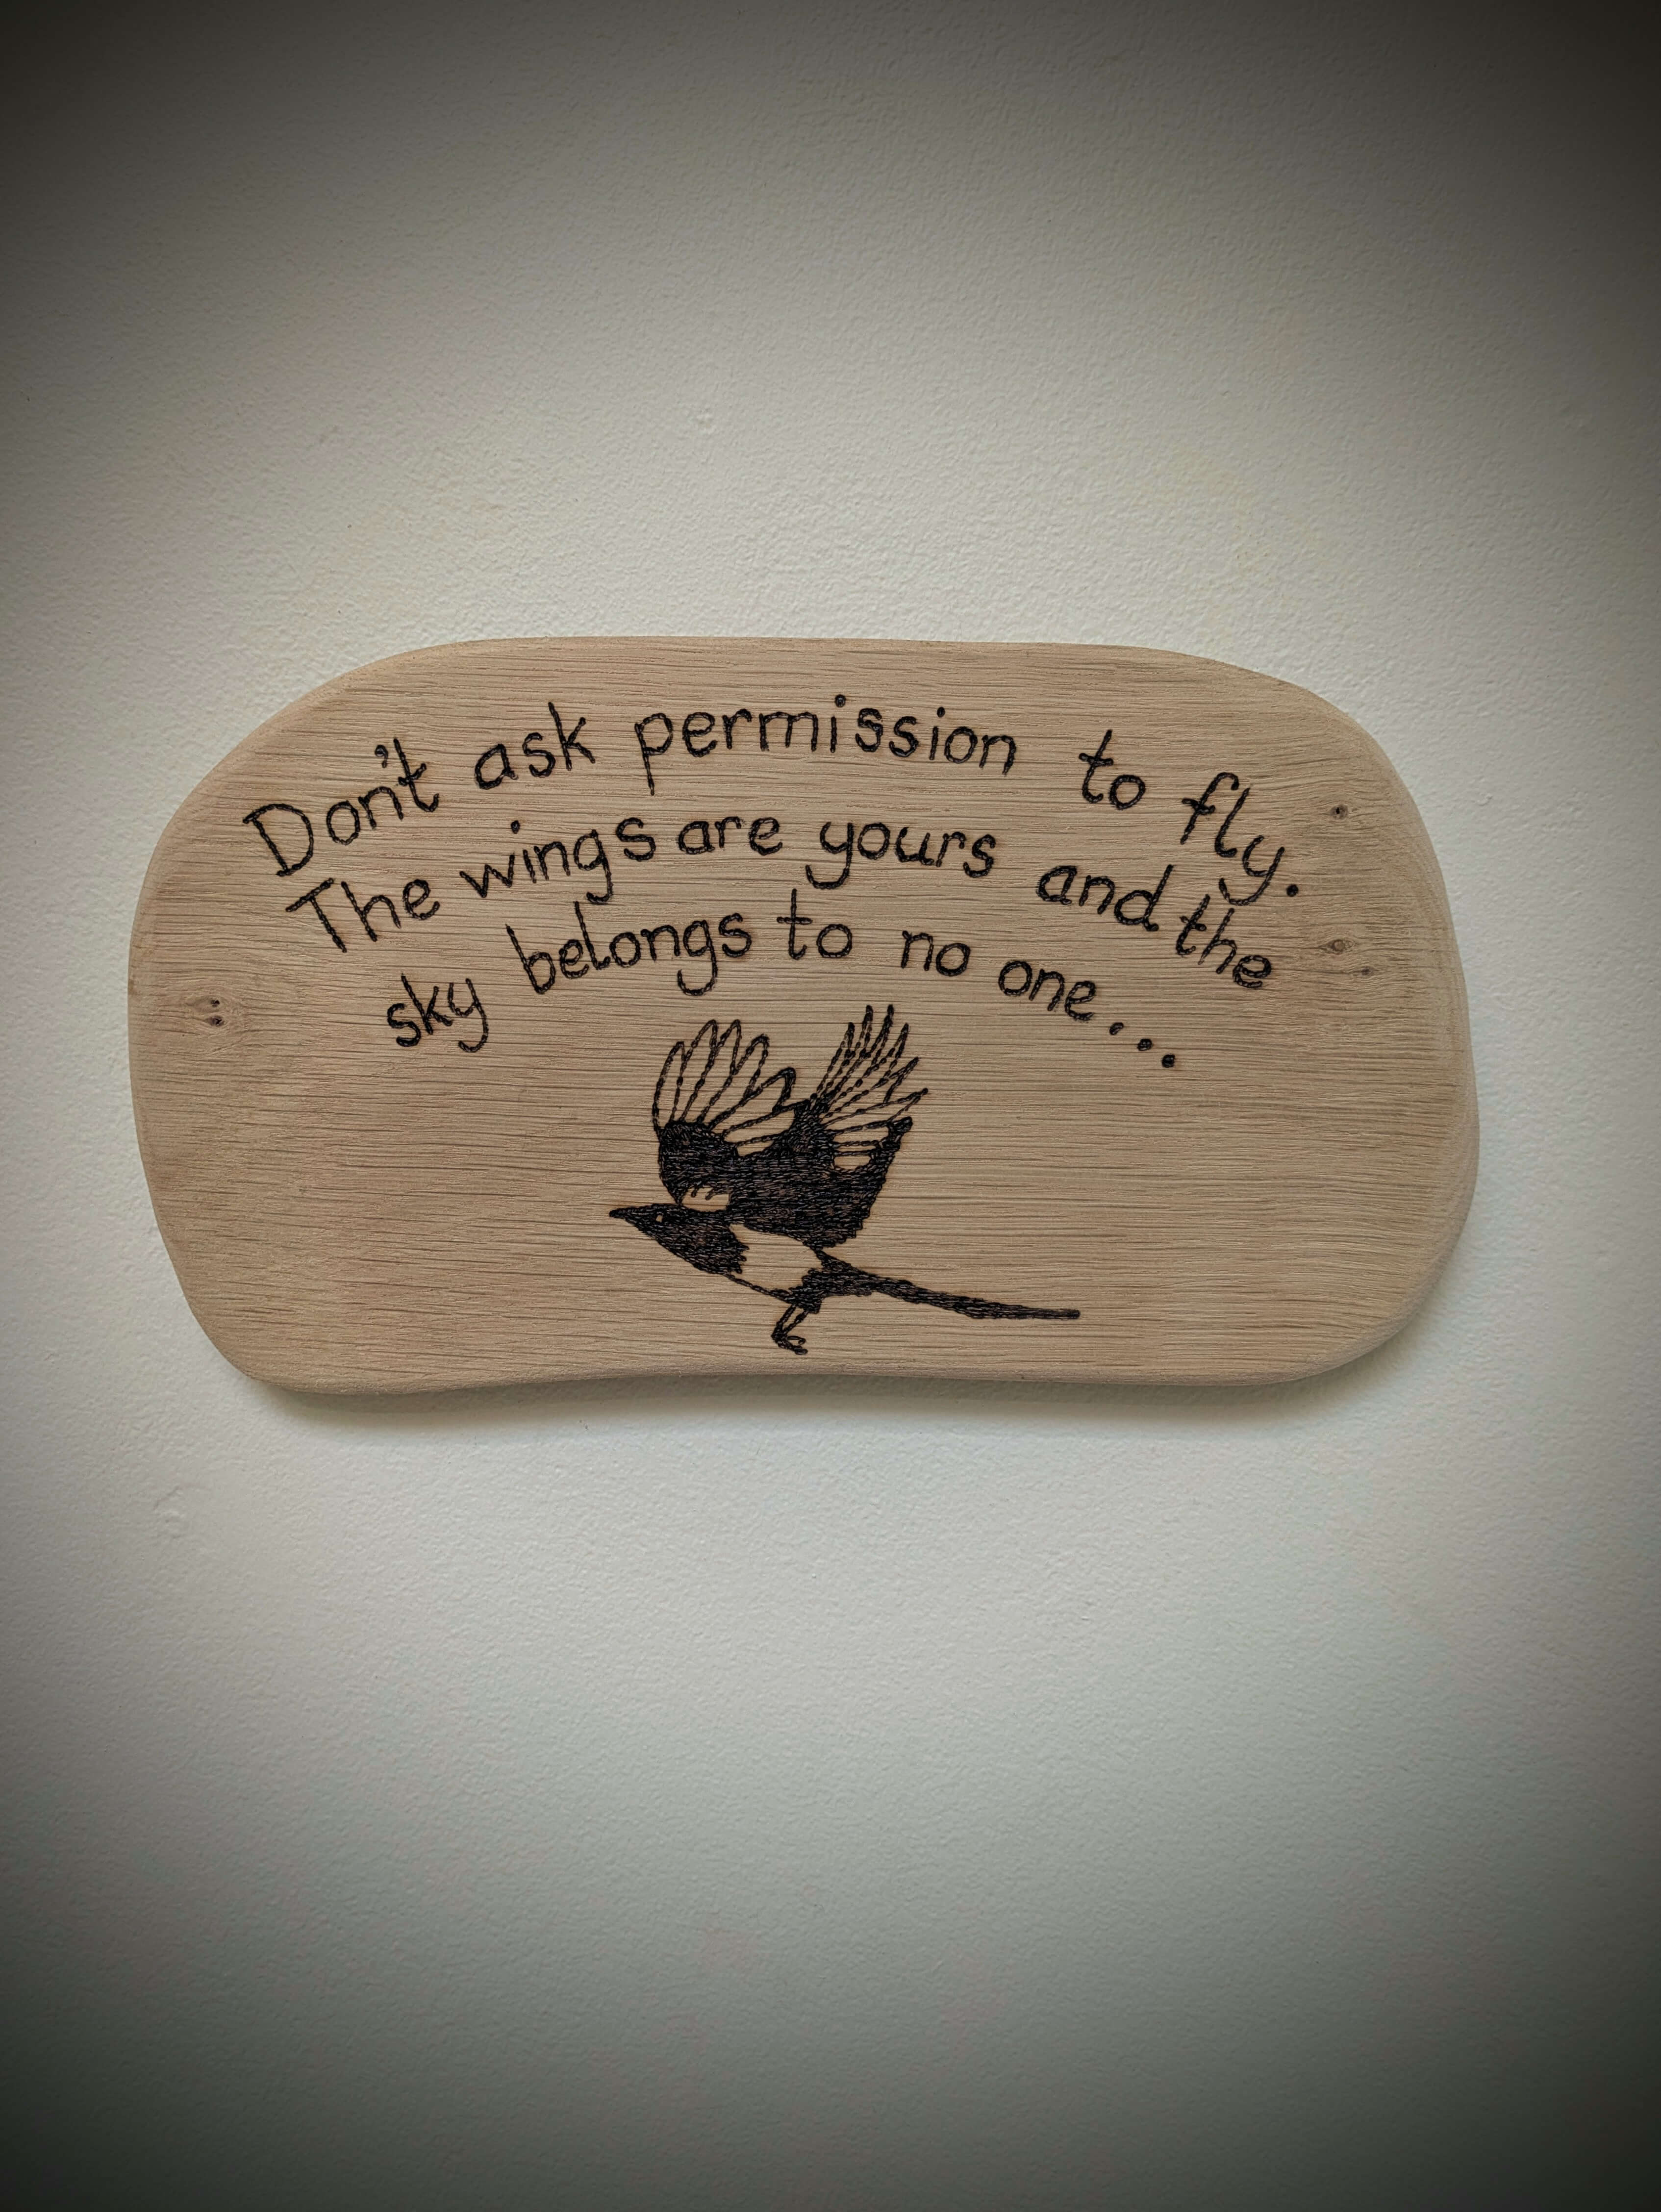 Don't ask permission to fly.
The wings are yours and the
sky belongs to no one...